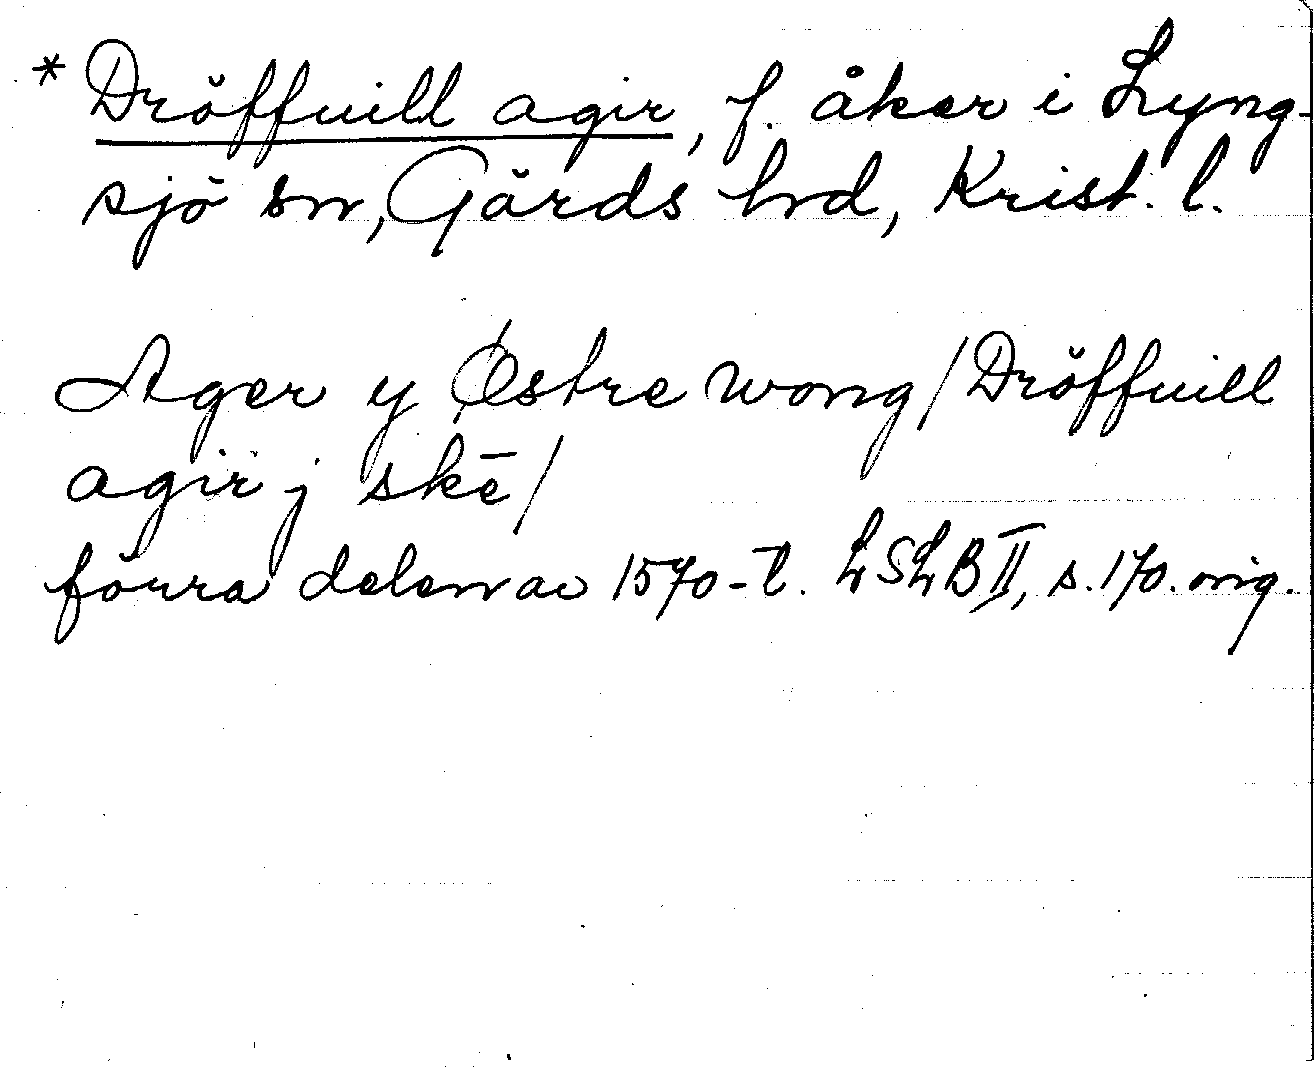 * Dröffuill agir, f. åker i Lyng-
sjö sn, Gärds hd, Krist. l.
Ager y Østre wong / Dröffuill
agir j skē /
förra delen av 1570-t. LSLB II, s. 170. orig.